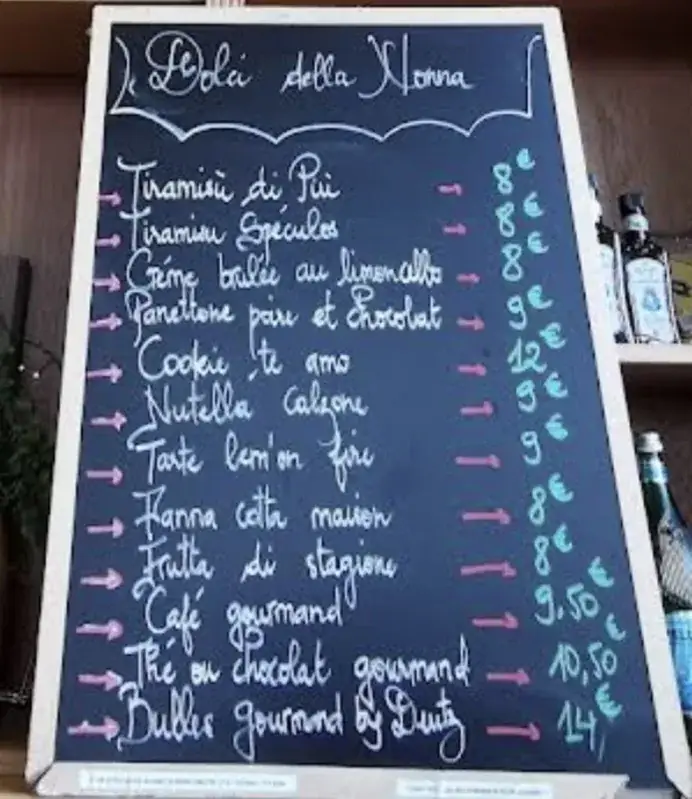 Le Dolci della Nonna
Tiramisù di Più → 8€
Tiramisu Spéculos → 8€
Crème brulée au limoncello → 8€
Panettone poire et Chocolat → 9€
Cookie te amo → 12€
Nutella Calzone → 9€
Tarte lem'on fire → 9€
Panna cotta maison → 8€
Frutta di stagione → 8€
Café gourmand → 9,50€
Thé ou Chocolat gourmand → 10,50€
Bulles gourmand by Deutz → 14€